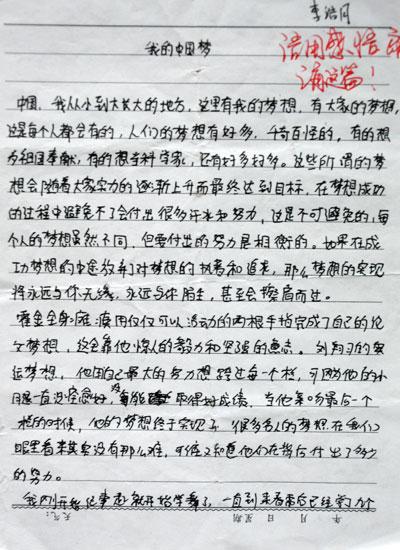 李浩月
我的中国梦
浩月感悟
中国，我从小到大长大的地方，这里有我的梦想，有大家的梦想，
这是每个人都会有的，人们的梦想有好多，千奇百怪的，有的想
为祖国奉献，有的想当科学家，还有好多好多。这些所谓的梦
想会随着大家实力的逐渐上升而最终达到目标，在梦想成功
的过程中避免不了会付出很多汗水和努力，这是不可避免的，每
个人的梦想虽然不同，但要付出的努力是相衡的。如果在成
功梦想的中途放弃了对梦想的执着和追求，那么梦想的实现
将永远与你无缘，永远与你陌生，甚至会擦肩而过。
霍金全身瘫痪用仅仅可以活动的两根手指完成了自己的论
文梦想，这全靠他惊人的毅力和坚强的意志。刘翔的奥
运梦想，他用自己最大的努力想跨过每个栏，可因为他的小
腿一直没完愈好，没能取得好成绩，当他单吻最后一个
栏的时候，他的梦想终于实现了。很多名人的梦想在我们
眼里看来其实没有那么难，可谁又知道他们在背后付出了多少
的努力。
我刚开始记事起就开始学舞了，一直到来着带后已经学了个
年 月 日 星期 天气：